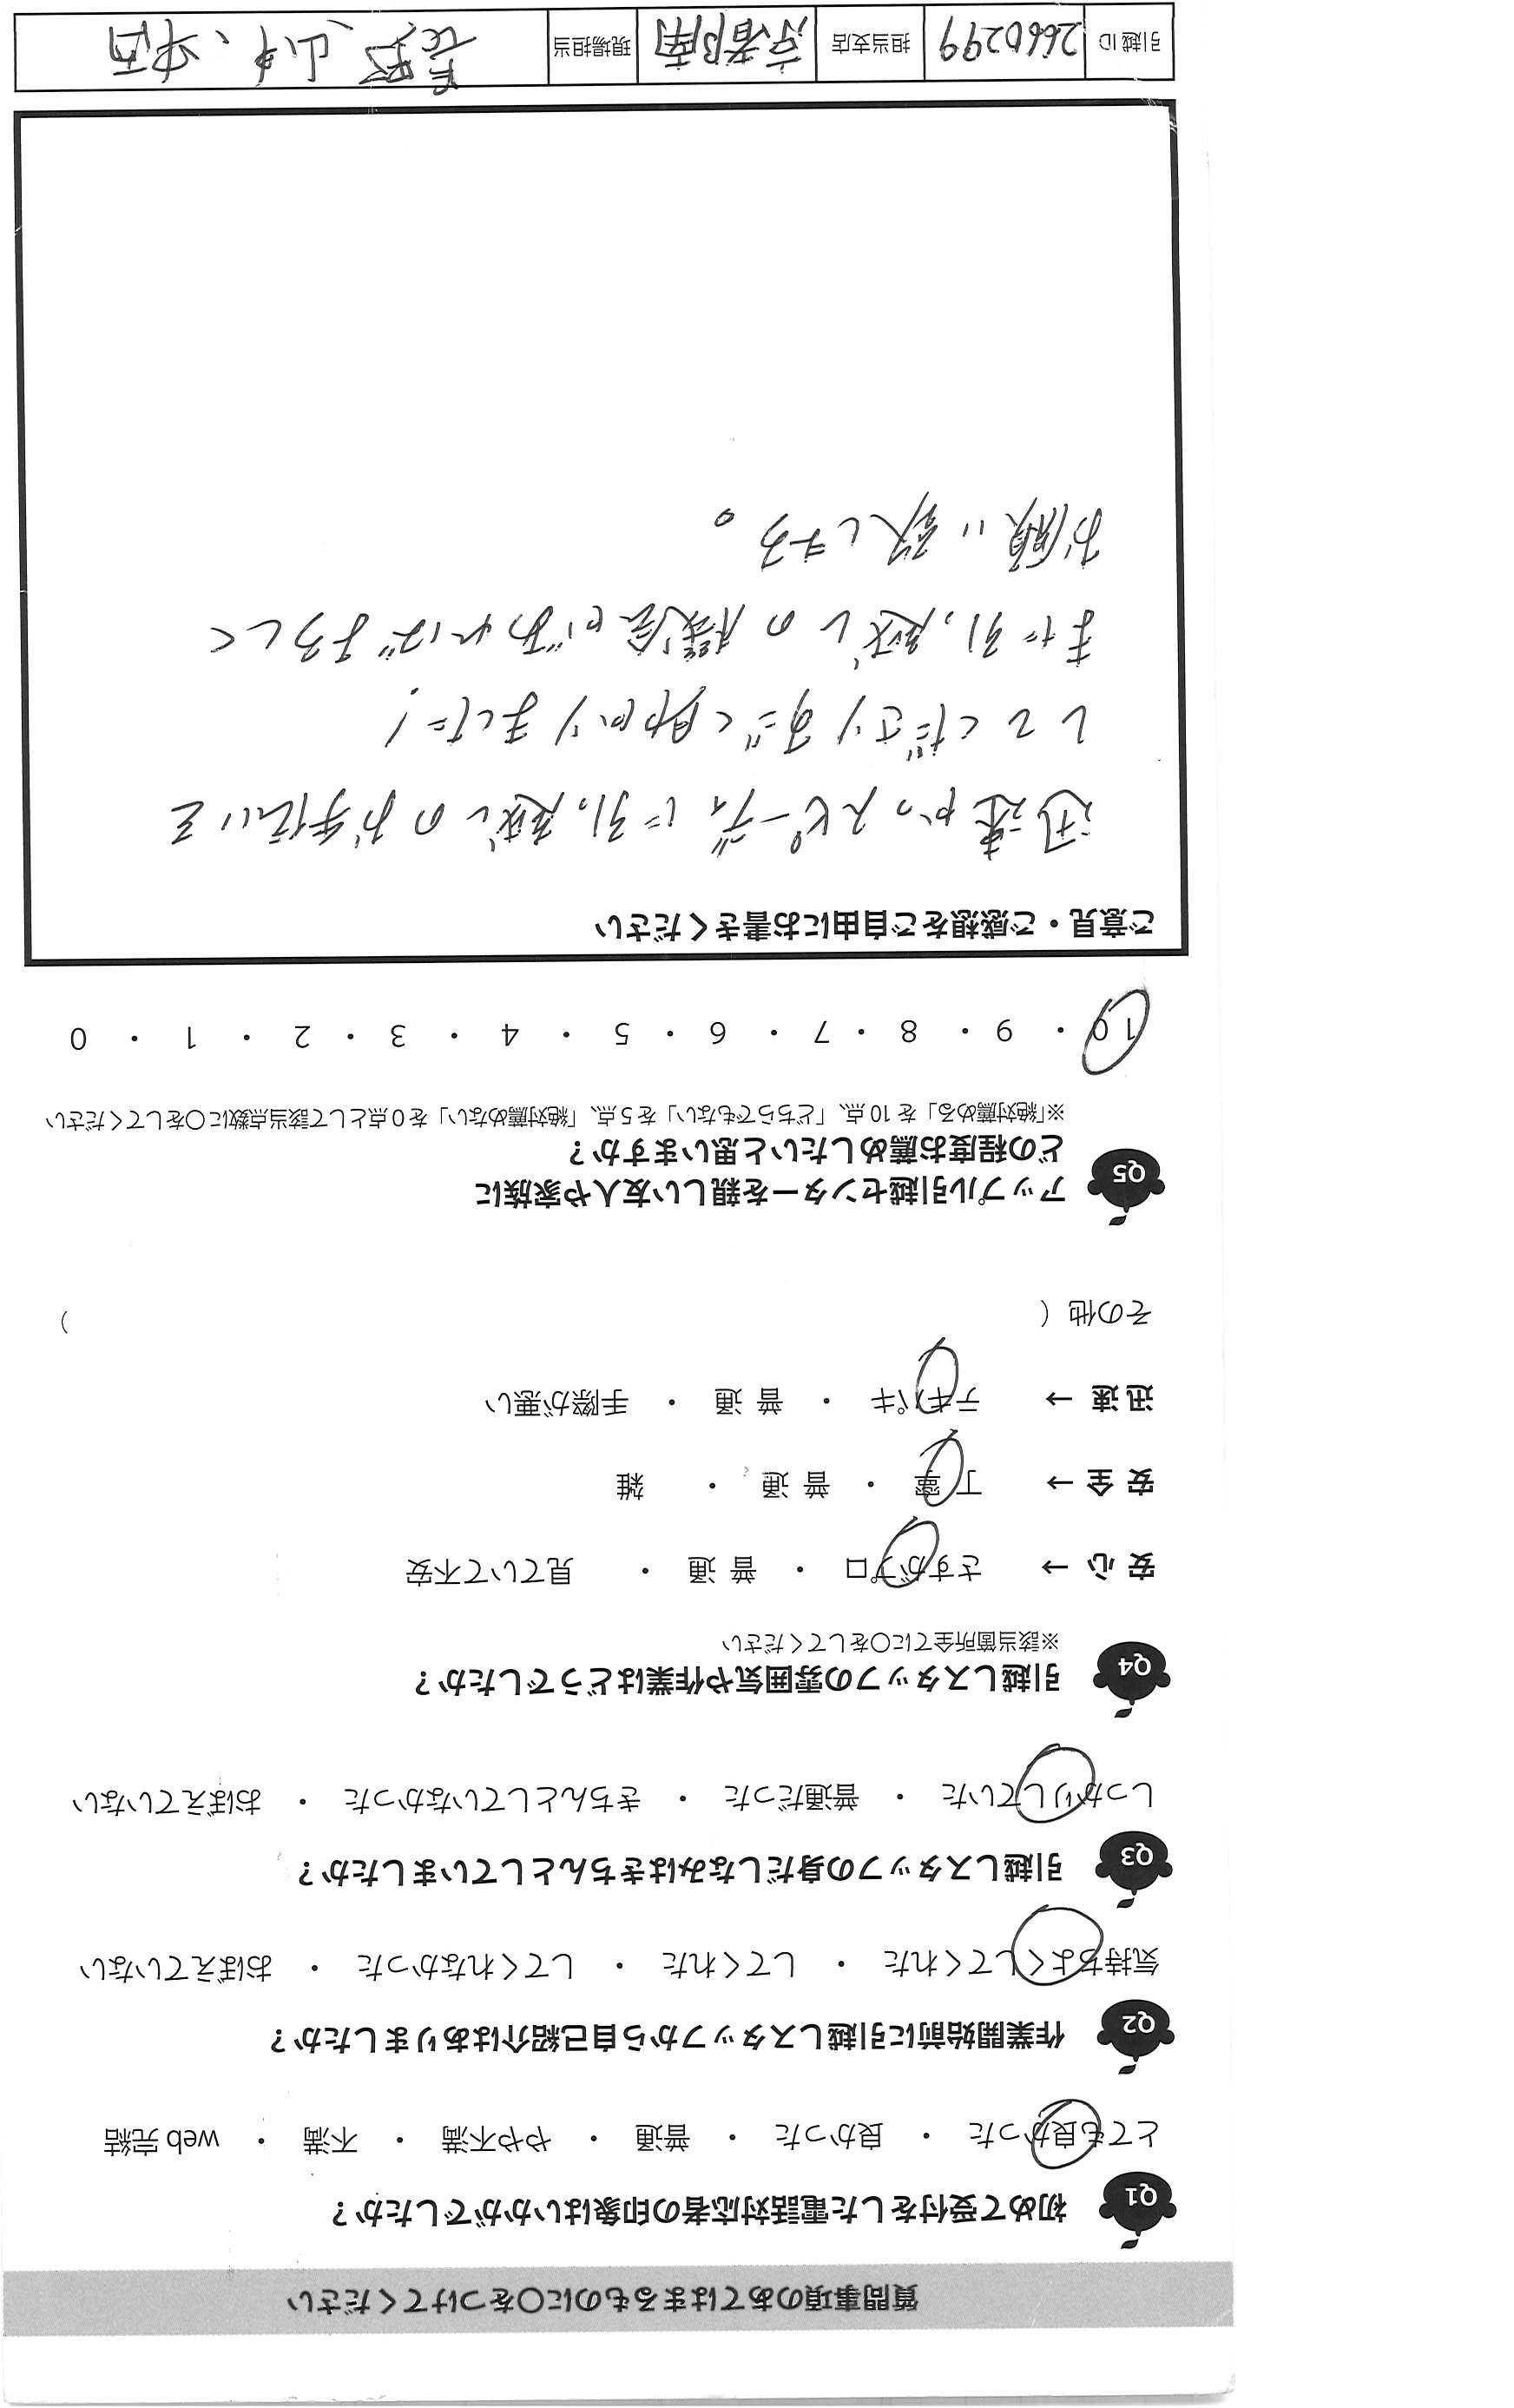 質問事項のあてはまるものに○をつけてください
Q1 初めて受付をした電話対応者の印象はいかがでしたか？
とても良かった ・ 良かった ・ 普通 ・ やや不満 ・ 不満 ・ web 完結
Q2 作業開始前に引越しスタッフから自己紹介はありましたか？
気持ちよくしてくれた ・ してくれた ・ してくれなかった ・ おぼえていない
Q3 引越しスタッフの身だしなみはきちんとしていましたか？
しっかりしていた ・ 普通だった ・ きちんとしていなかった ・ おぼえていない
Q4 引越しスタッフの雰囲気や作業はどうでしたか？
※該当箇所全てに○をしてください
安心 → さすがプロ ・ 普通 ・ 見ていて不安
安全 → 丁寧 ・ 普通 ・ 雑
迅速 → テキパキ ・ 普通 ・ 手際が悪い
その他（ ）
Q5 アップル引越センターを親しい友人や家族に
どの程度お薦めしたいと思いますか？
※「絶対薦める」を 10 点、「どちらでもない」を 5 点、「絶対薦めない」を 0 点として該当点数に○をしてください
10 ・ 9 ・ 8 ・ 7 ・ 6 ・ 5 ・ 4 ・ 3 ・ 2 ・ 1 ・ 0
ご意見・ご感想をご自由にお書きください
迅速かつスピーディに引っ越しのお手伝いを
してくださりすごく助かりました!
また引っ越しの機会があればよろしく
お願い致します。
引越 ID 2660299 担当支店 京都南 現場担当 長野、山中、中西